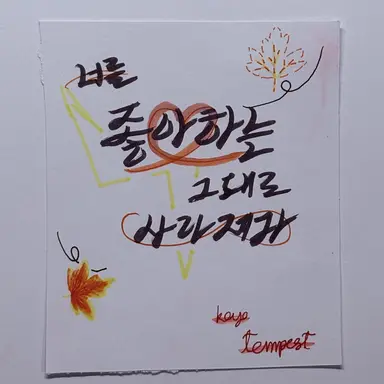 너를
좋아하는
그대로
사라져라
kayo
tempest